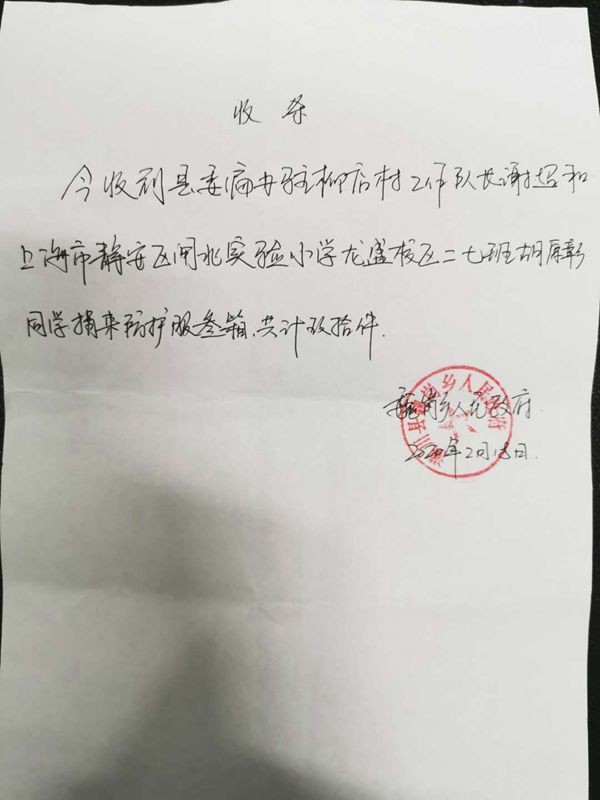 收条
今收到县委病办驻柳店村工作队长谢超和
上海市静安区闸北实验小学龙盛校区二七班胡厚彰
同学捐来防护服叁箱,共计玖拾件.
魏岗乡人民政府
潢川县魏岗乡人民政府
2020年2月18日.